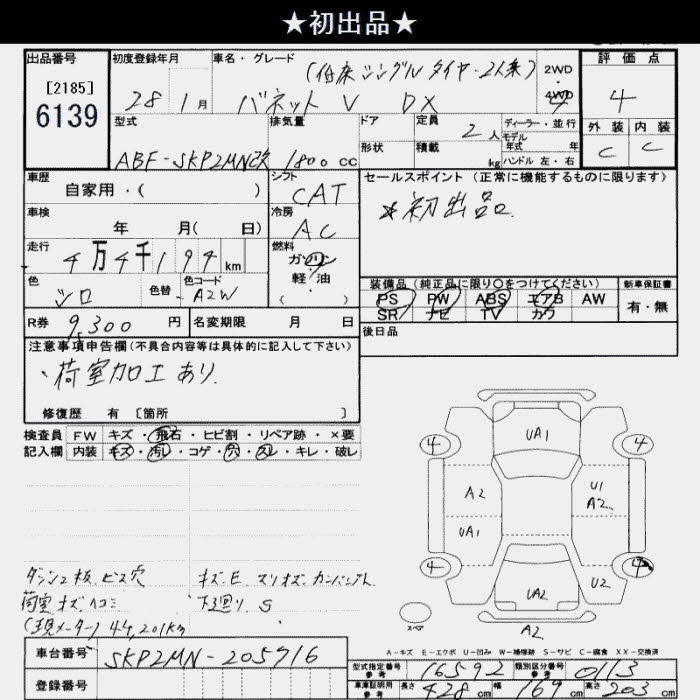 ★初出品★
出品番号 初度登録年月 車名・グレード 評価点
[2185] (低床 シングルタイヤ・2人乗) 2WD
6139 28 1月 バネット V DX 4WD 4
型式 排気量 ドア 定員 ディーラー・並行 外装 内装
2人 モデル
形状 積載 年式 年 C C
ABF-SKP2MN改 1800cc kg ハンドル 左・右
車歴 シフト セールスポイント (正常に機能するものに限ります)
自家用・( ) CAT ★初出品.
車検 冷房
年 月( 日) AC
走行 燃料
4万4千194km ガソリン
軽・油
色 色替 色コード ( ) 装備品(純正品に限り○をつけてください) 新車保証書
シロ A2W PS PW ABS エアB AW 有・無
SR ナビ TV カワ
R券 9,300円 名変期限 月 日 後日品
注意事項申告欄(不具合内容等は具体的に記入して下さい)
・荷室加工 あり.
修復歴 有 [箇所 ]
検査員 FW キズ・飛石・ヒビ割・リペア跡・×要
記入欄 内装 キズ・汚レ・コゲ・穴・スレ・キレ・破レ
4 UA1 4
A2 U1
A2
UA1
4 UA2 U2
スペア A2
ダッシュ板, ビス穴
荷室 キズ, ヘコミ 下廻り, S
(現メーター) 44,201km
A-キズ E-エクボ U-凹み W-補修跡 S-サビ C-腐食 XX-交換済
車台番号 SKP2MN-205716
型式指定番号 参考 16592 類別区分番号 参考 0113
登録番号 車庫証明用 参考 長さ 428cm 幅 169cm 高さ 203cm